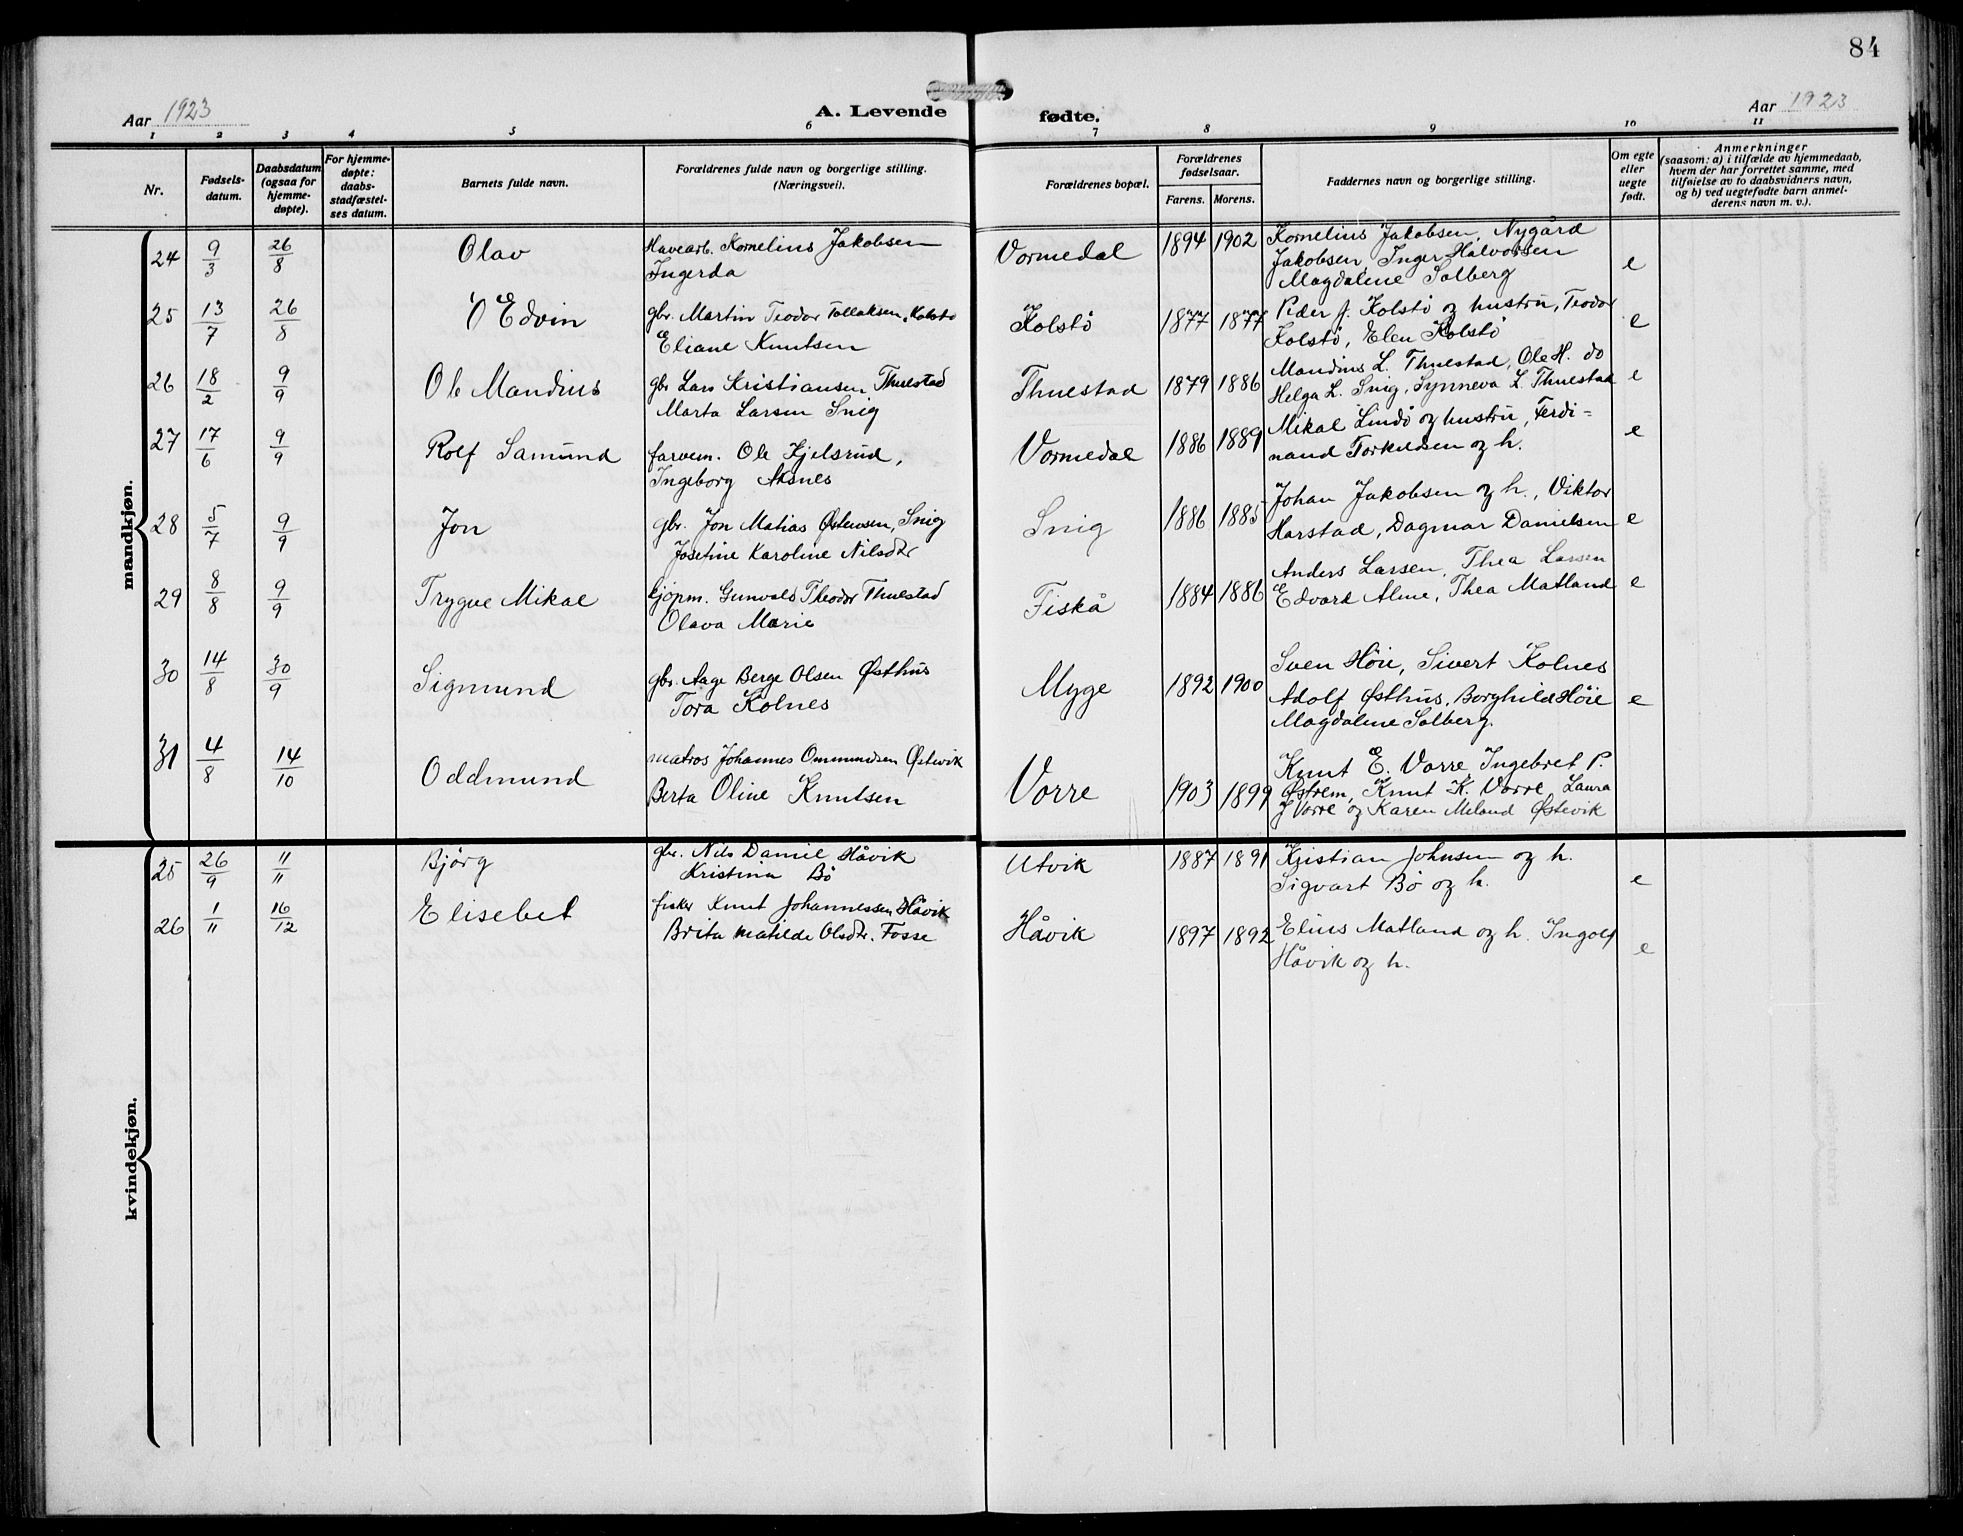 84
Aar 1923
A. Levende
fødte.
Aar 1923
1 2 3 4 5 6 7 8 9 10 11
Nr.
Fødsels-
datum.
Daabsdatum
(ogsaa for
hjemme-
døpte).
For hjemme-
døpte:
daabs-
stadfæstel-
ses datum.
Barnets fulde navn.
Forældrenes fulde navn og borgerlige stilling.
(Næringsvei).
Forældrenes bopæl.
Forældrenes
fødselsaar.
Farens. Morens.
Faddernes navn og borgerlige stilling.
Om egte
eller
uegte
født.
Anmerkninger
(saasom: a) i tilfælde av hjemmedaab,
hvem der har forrettet samme, med
tilføielse av to daabsvidners navn,
og b) ved uegtefødte barn anmel-
derens navn m. v.).
mandkjøn.
24 9/3 26/8 Olav
Havearb. Kornelius Jakobsen
Ingerda
Vormedal 1894 1902
Kornelius Jakobsen, Nygård
Jakobsen Inger Halvorsen
Magdalene Solberg
e
25 13/7 26/8 O Edvin
gbr. Martin Teodor Tollaksen, Kolstø
Eliane Knutsen
Kolstö 1877 1877
Peder J. Kolstö og hustru, Teodor
Kolstö, Elen Kolstö
e
26 18/2 9/9 Ole Mandius
gbr Lars Kristiansen Thuestad
Marta Larsen Snig
Thuestad 1879 1886
Mandius L. Thuestad, Ole H. do
Helga L. Snig, Synneva L. Thuestad
e
27 17/6 9/9 Rolf Samund
farvem. Ole Kjelsrud,
Ingeborg Aksnes
Vormedal 1886 1889
Mikal Lindö og hustru, Ferdi=
nand Torkildsen og h.
e
28 5/7 9/9 Jon
gbr. Jon Matias Østensen, Snig
Josefine Karoline Nilsdtr
Snig 1886 1885
Johan Jakobsen og h., Viktor
Harstad, Dagmar Danielsen
e
29 8/8 9/9 Trygve Mikal
kjøpm. Gunvald Theodor Thuestad
Olava Marie
Fiskå 1884 1886
Anders Larsen, Thea Larsen
Edvard Alne, Thea Matland
e
30 14/8 30/9 Sigmund
gbr. Aage Berge Olsen Østhus
Tora Kolnes
Myge 1892 1900
Sven Höie, Sivert Kolnes
Adolf Østhus, Borghild Höie
Magdalene Solberg.
e
31 4/8 14/10 Oddmund
matros Johannes Ommundsen Østevik
Berta Oline Knutsen
Vorre 1903 1899
Knut E. Vorre Ingebret P.
Østrem, Knut K. Vorre, Laura
J Vorre og Karen Meland Østevik
kvindekjøn.
25 26/9 11/11 Bjørg
gbr. Nils Daniel Håvik
Kristina Bö
Utvik 1887 1891
Kristian Johnsen og h.
Sigvart Bö og h.
e
26 1/11 16/12 Elisebet
fisker Knut Johannessen Håvik
Brita Matilde Olsdtr. Fosse
Håvik 1897 1892
Elius Matland og h. Ingolf
Håvik og h.
e